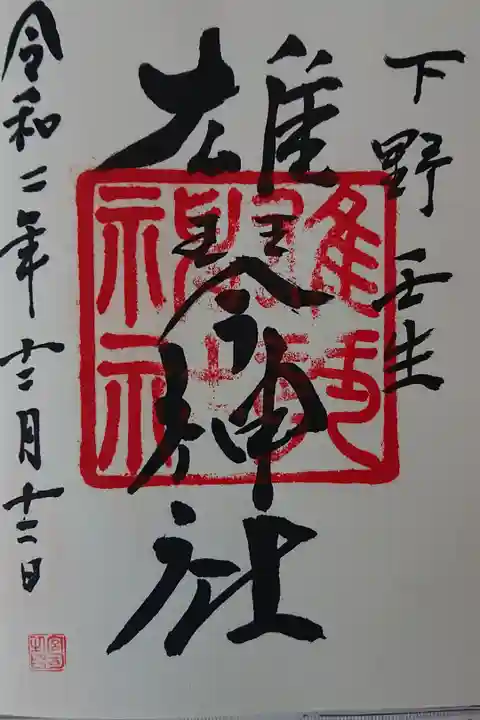 下野 壬生
雄琴神社
令和二年十二月十二日